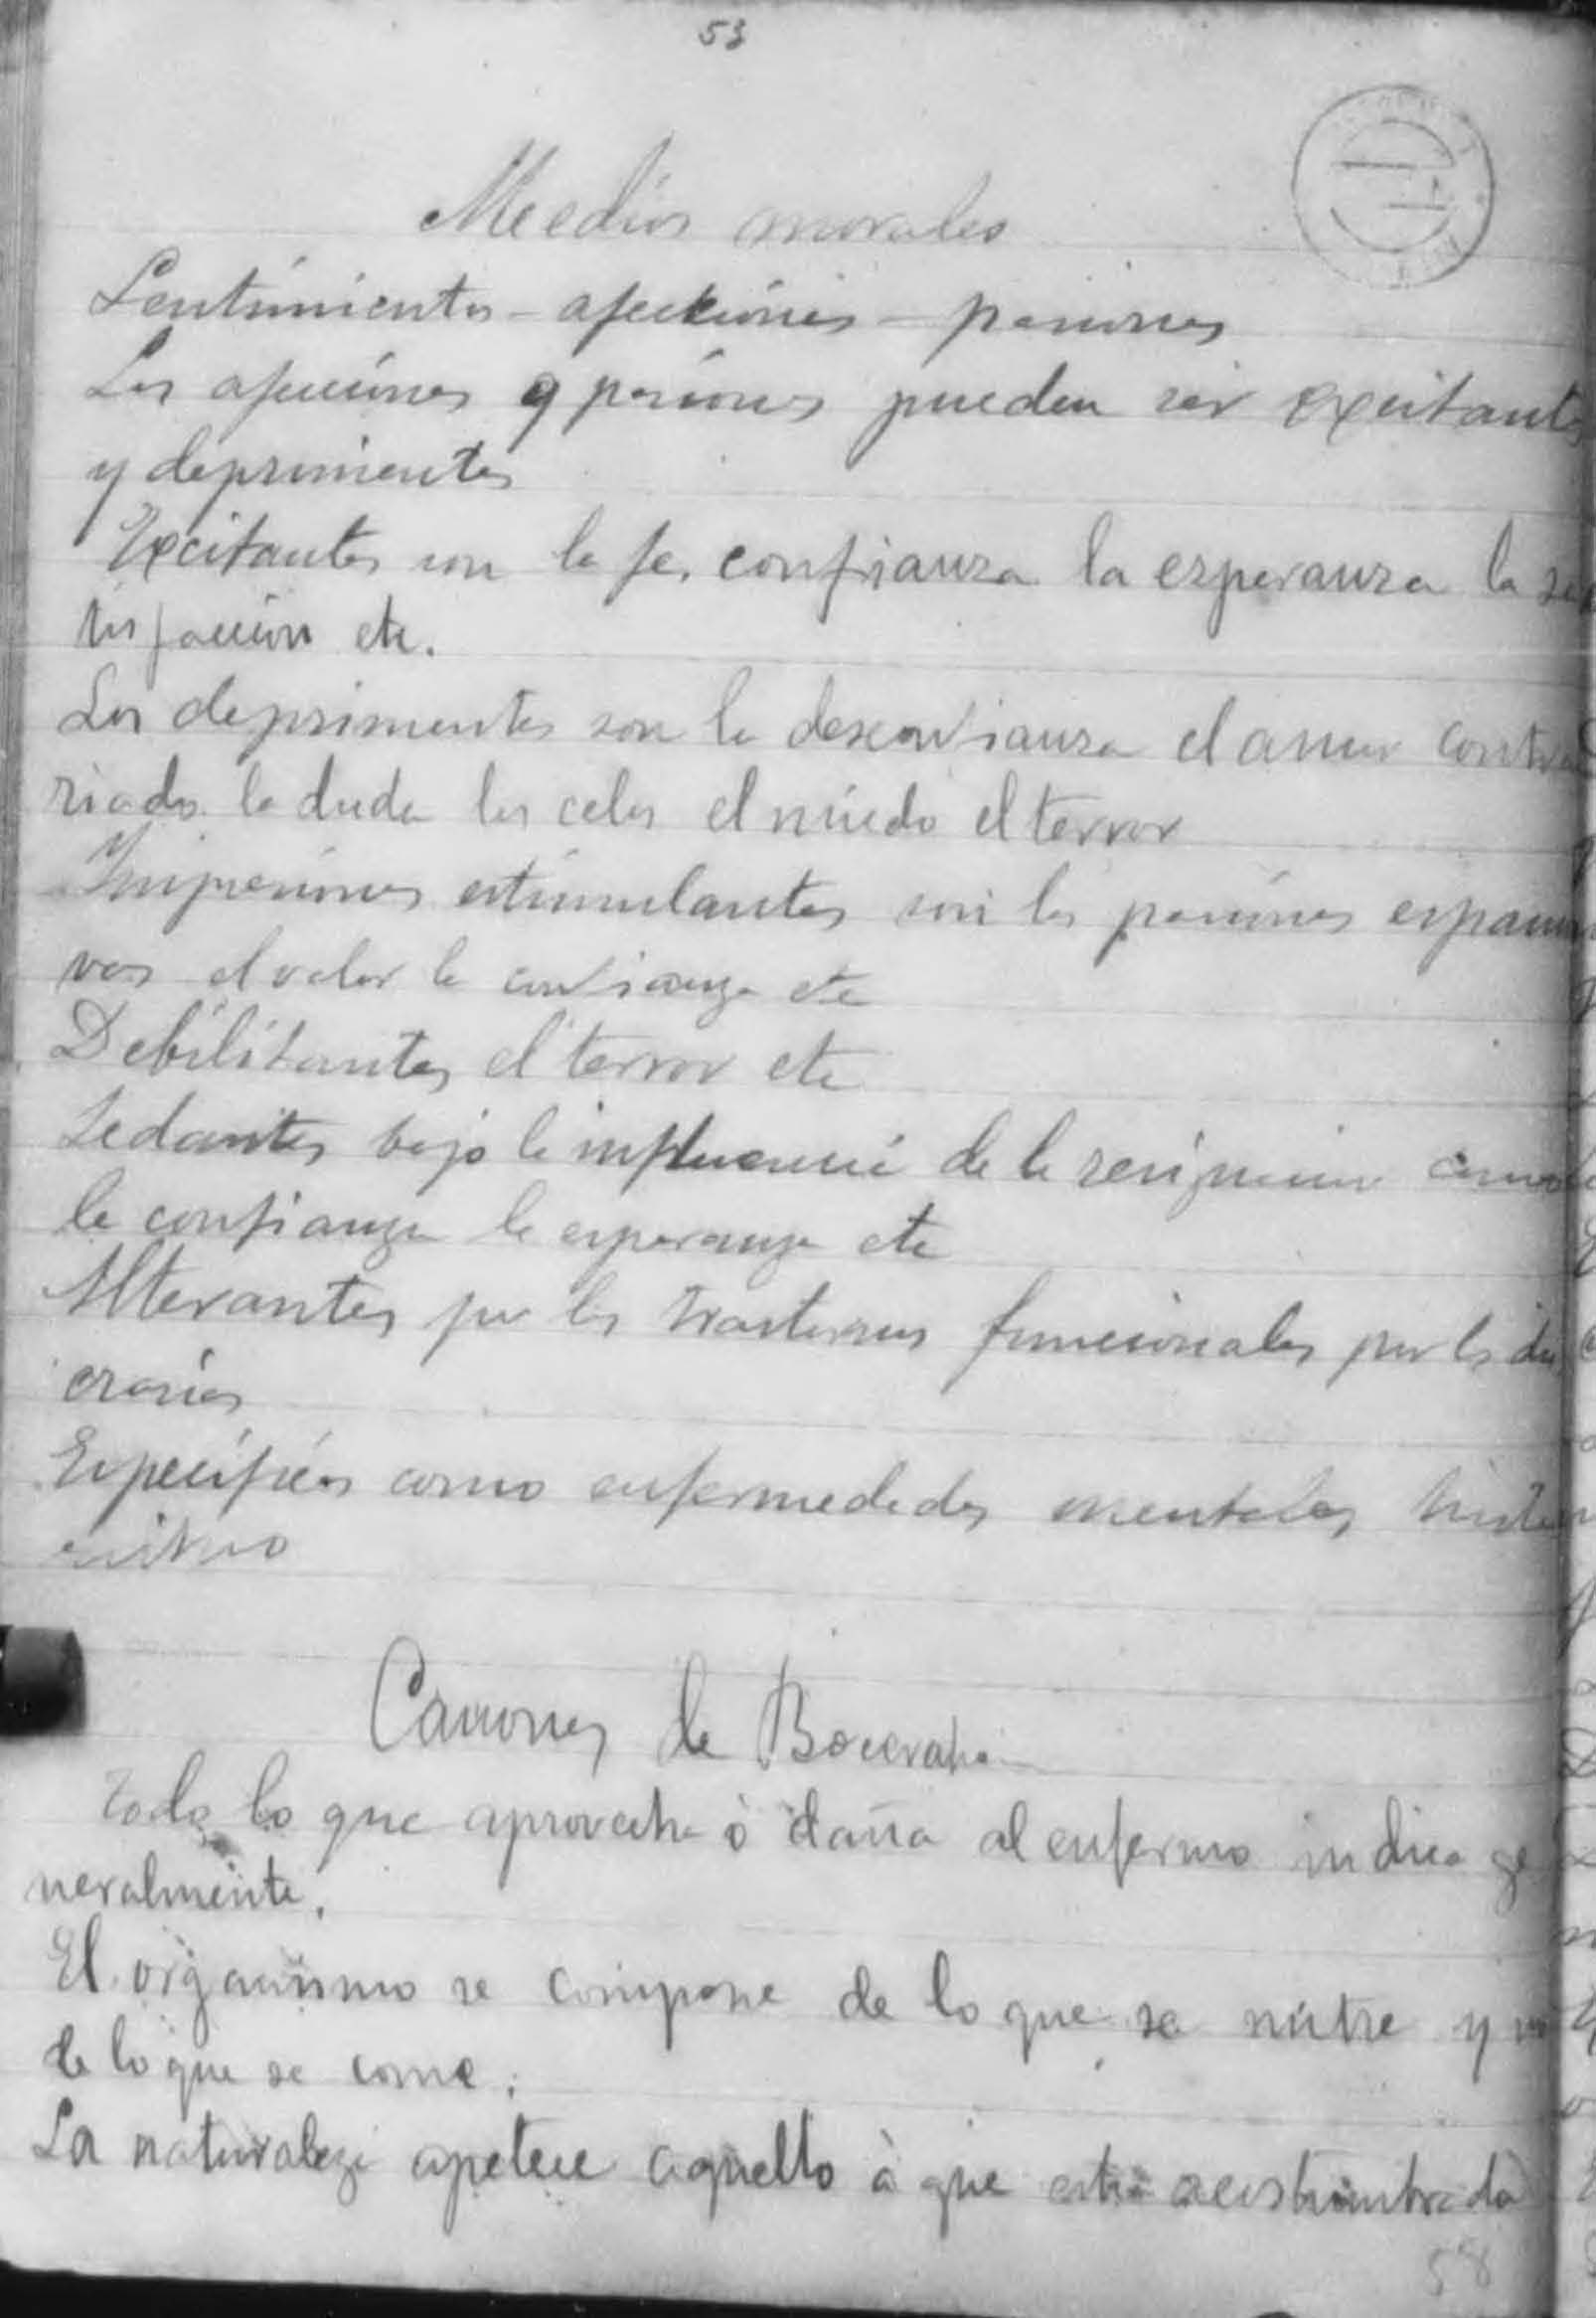 53
Meedios morales
Sentimientos - afecciónes - pasiones
Las afecciones y pasiones pueden ser excitantes
y deprimentes
Excitantes son la fe, confianza la esperanza la sa
tisfaccion etc.
Los deprimentes son la desconfianza el amor contra
riado la duda los celos el miedo el terror
Impresiones estimulantes son las pasiones espansi
vas el valor la confianza etc
Debilitantes el terror etc
Sedantes bajo la influencia de la resignacion como
la confianza la esperanza etc
Alterantes por los trastornos funcionales por las dis
crasias
Especificas como enfermedades mentales histe
rismo
Canones de
Todo lo que aprovecha ó daña al enfermo indica ge
neralmente.
El organismo se compone de lo que se nutre y no
de lo que se come.
La naturaleza apetece aquello à que està acostumbrada
58